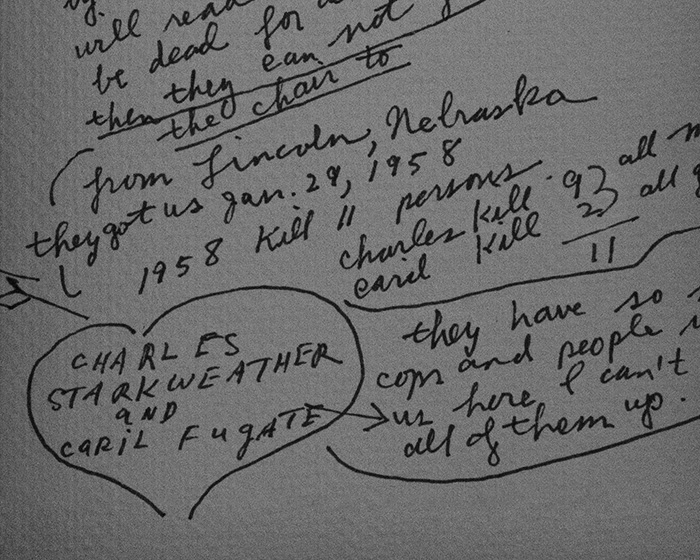 will read
be dead for
then they can not
the chair to
from Lincoln, Nebraska
they got us Jan. 29, 1958
1958 kill 11 persons
charles kill 9} all
caril kill 2} all
11
they have so
cops and people
us here I can't
all of them up.
CHARLES
STARKWEATHER
aND
CARiL FugATE